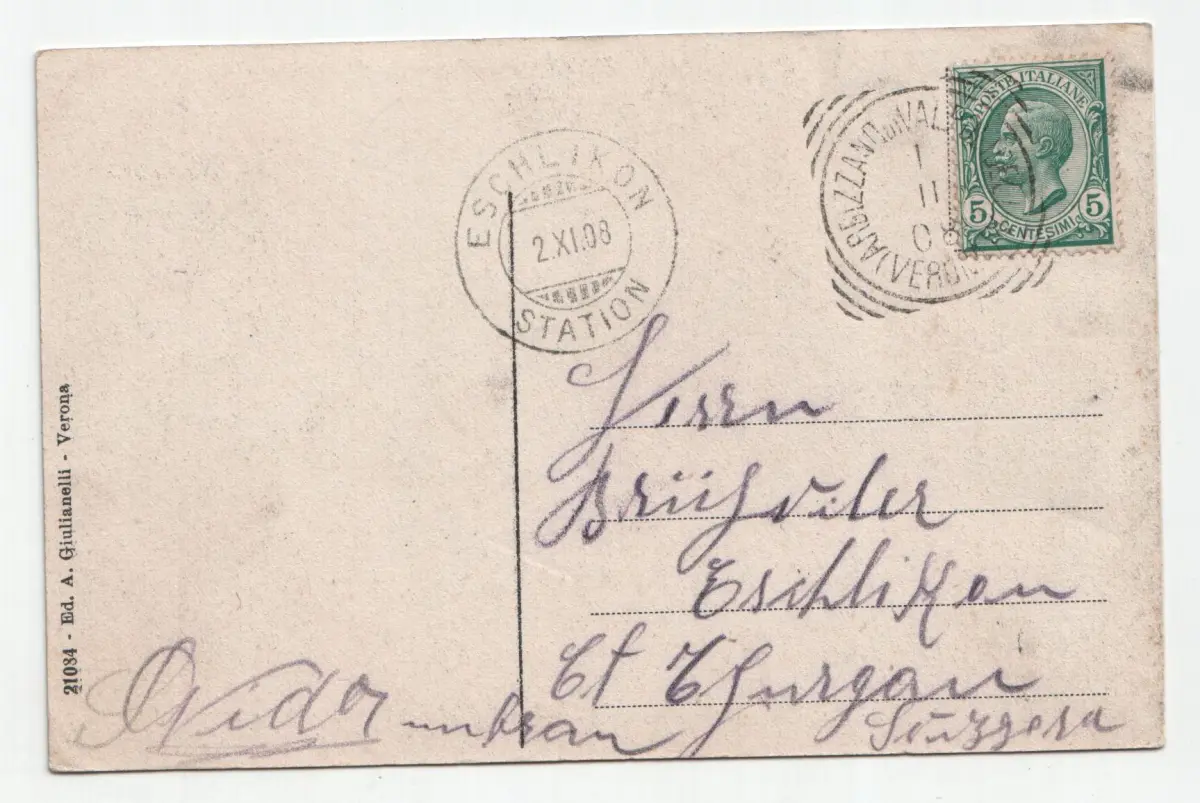 ESCHLIKON
2.XI.08
STATION
ARBIZZANO DI VAL
1
11
08
(VERONA
POSTE ITALIANE
5 CENTESIMI 5
Herrn
Brühwiler
Eschlikon
Ct Thurgau
Suizzera
21084 - Ed. A. Giulianelli - Verona